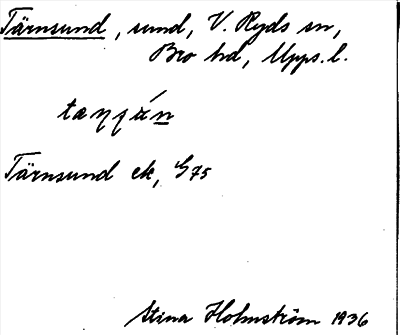 Tärnsund, sund, V. Ryds sn,
Bro hd, Upps. l.
Tärnsund ek, G75
Stina Holmström 1936